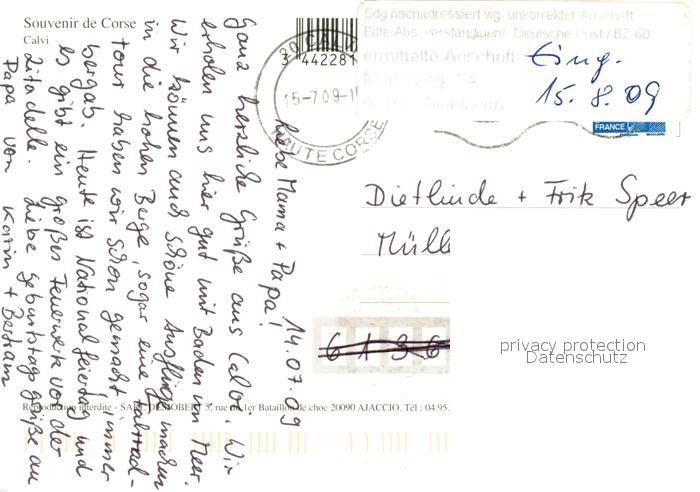 Souvenir de Corse
Calvi
Sdg nachadressiert wg. unkorrekter Anschrift
Bitte Abs. verständigen! Deutsche Post / BZ 60
ermittelte Anschrift:
Eing.
15.8.09
3 442281
15-7 09-1
HAUTE CORSE
FRANCE
14.07.09
Liebe Mama + Papa!
Ganz herzliche Grüße aus Calvi. Wir
erholen uns hier gut mit Baden im Meer.
Wir können auch schöne Ausflüge machen
in die hohen Berge, sogar eine Fahrrad-
tour haben wir schon gemacht, immer
bergab. Heute ist Nationalfeiertag und
es gibt ein großes Feuerwerk vor der
Zitadelle. Liebe Geburtstagsgrüße an
Papa von Karin + Bertram
Dietlinde + Fritz Speer
Müll
6 1 3 6
privacy protection
Datenschutz
Reproduction interdite - SARL DESJOBERT 5, rue du 1er Bataillon de choc 20090 AJACCIO. Tél : 04.95.